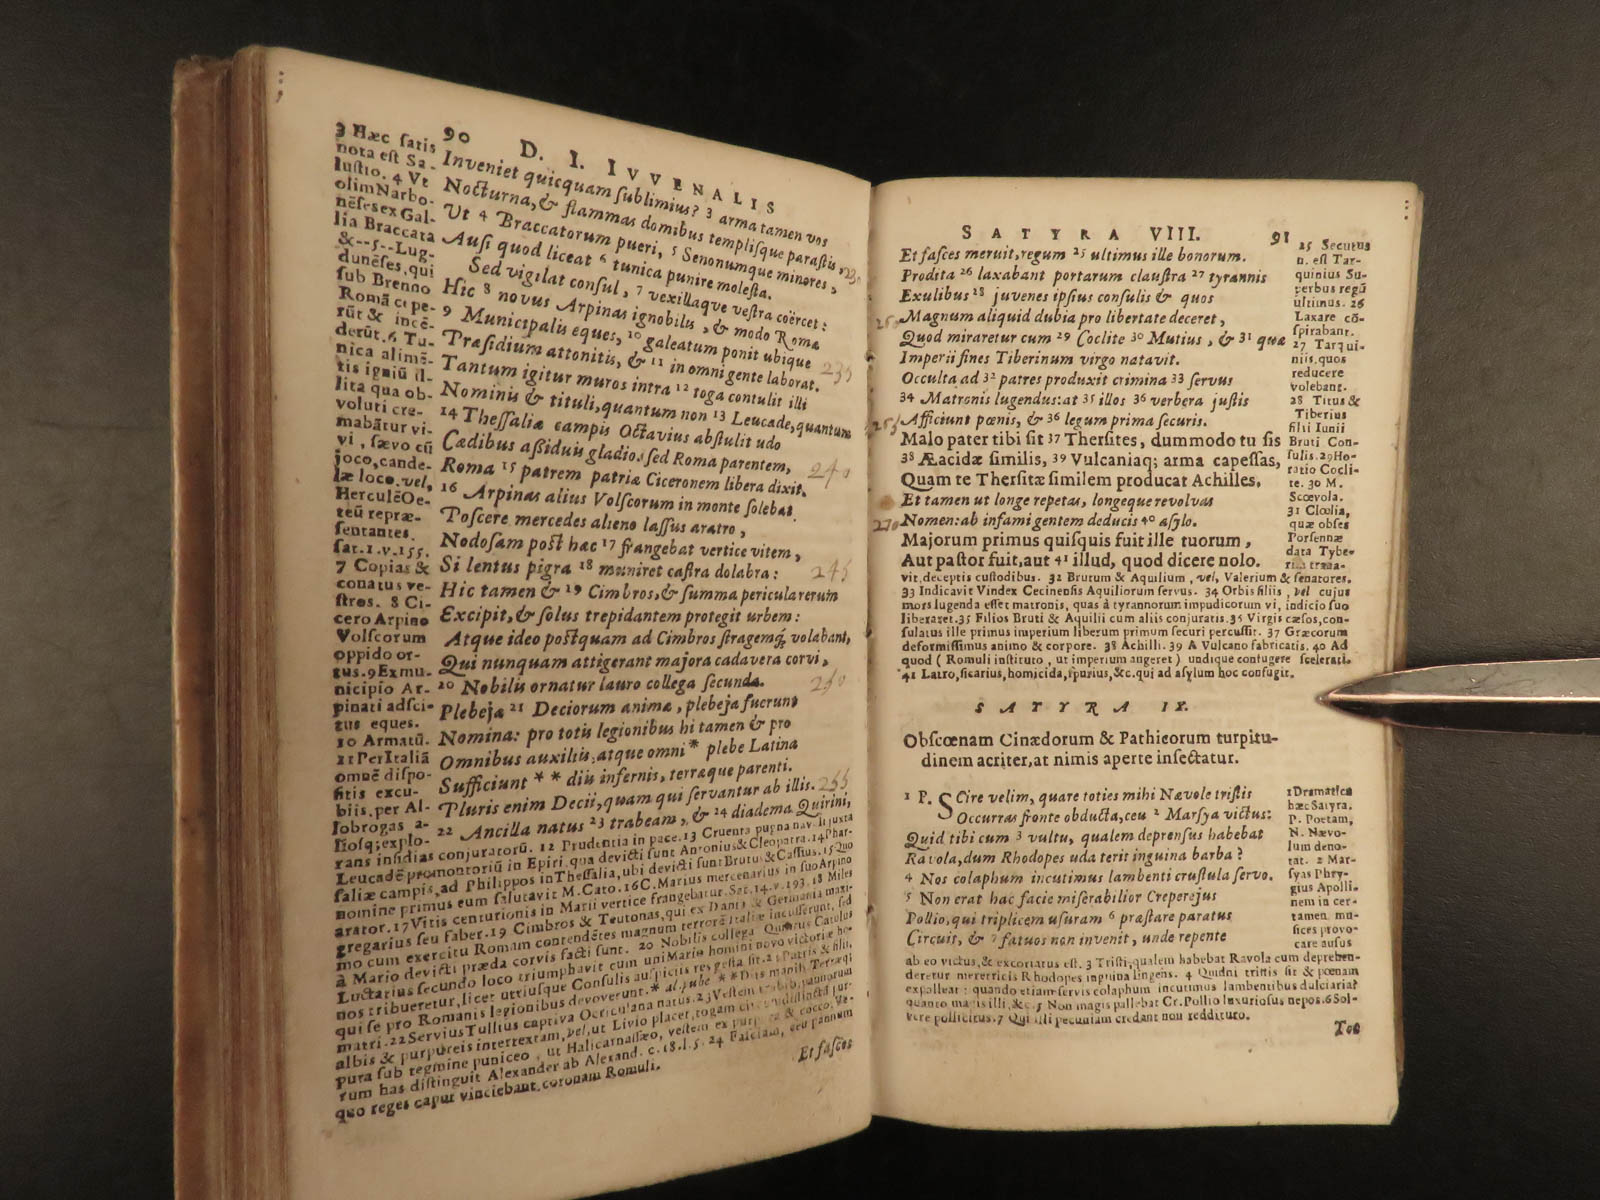 90 D. I. IVVENALIS
Inveniet quicquam sublimius? 3 arma tamen vos
Nocturna, & flammas domibus templisque parastis,
Ut 4 Braccatorum pueri, 5 Senonumque minores, 230
Ausi quod liceat 6 tunica punire molesta.
Sed vigilat consul, 7 vexillaque vestra coërcet:
Hic 8 novus Arpinas ignobilis, & modo Romæ
9 Municipalis eques, 10 galeatum ponit ubique
Præsidium attonitis, & 11 in omni gente laborat. 235
Tantum igitur muros intra 12 toga contulit illi
Nominis & tituli, quantum non 13 Leucade, quantum
14 Thessaliæ campis Octavius abstulit udo
Cædibus assiduis gladio: sed Roma parentem,
Roma 15 patrem patriæ Ciceronem libera dixit. 240
16 Arpinas alius Volscorum in monte solebat
Poscere mercedes alieno lassus aratro,
Nodosam post hæc 17 frangebat vertice vitem,
Si lentus pigra 18 muniret castra dolabra: 245
Hic tamen & 19 Cimbros, & summa pericula rerum
Excipit, & solus trepidantem protegit urbem:
Atque ideo postquam ad Cimbros stragemq; volabant,
Qui nunquam attigerant majora cadavera corvi,
20 Nobilis ornatur lauro collega secunda. 250
Plebejæ 21 Deciorum animæ, plebeja fuerunt
Nomina: pro totis legionibus hi tamen & pro
Omnibus auxiliis, atque omni * plebe Latina
Sufficiunt ** diis infernis, terræque parenti.
Pluris enim Decii, quam qui servantur ab illis. 255
22 Ancilla natus 23 trabeam, & 24 diadema Quirini,
3 Hæc satis
nota est Sa-
lustio. 4 Vt
olim Narbo-
nēses ex Gal-
lia Braccata
&--5--Lug-
dunēses, qui
sub Brenno
Romā cœpe-
rūt & incē-
derūt. 6 Tu-
nica alimē-
tis igniū il-
lita qua ob-
voluti cre-
mabātur vi-
vi, sævo cū
joco, cande-
læ loco. vel,
Herculē Oe-
teū repræ-
sentantes.
sat. 1. v. 155.
7 Copias &
conatus ve-
stros. 8 Ci-
cero Arpino
Volscorum
oppido or-
tus. 9 Ex mu-
nicipio Ar-
pinati adsci-
tus eques.
10 Armatū.
11 Per Italiā
omnē dispo-
sitis excu-
biis, per Al-
lobrogas a-
liosq; explo-
rans insidias conjuratorū. 12 Prudentia in pace. 13 Cruenta pugna nav-li juxta
Leucadē promontoriū in Epiri, qua devicti sunt Antonius & Cleopatra. 14 Phar-
saliæ campis, ad Philippos in Thessalia, ubi devicti sunt Brutus & Cassius. 15 Quo
nomine primus eum salutavit M. Cato. 16 C. Marius mercenarius in suo Arpino
arator. 17 Vitis centurionis in Marii vertice frangebatur. Sat. 14. v. 193. 18 Miles
gregarius seu faber. 19 Cimbros & Teutonas, qui ex Dania & Germania maxi-
mo cum exercitu Romam contendētes magnum terrorē Italiæ incusserunt, sed
à Mario devicti præda corvis facti sunt. 20 Nobilis collega Quintus Catulus
Luctatius secundo loco triumphavit cum uni Mario homini novo victoriæ ho-
nos tribueretur, licet utriusque Consulis auspiciis res gesta sit. 21 Patris & filii,
qui se pro Romanis legionibus devoverunt. * al. pube ** Diis manib. Terræqi
matri. 22 Servius Tullius captiva Ocriculana natus. 23 Vestem pannorum
albis & purpureis intertextam, vel, ut Livio placet, togam
pura sub tegmine puniceo, ut Halicarnassæo, vestem ex purpura & cocco. Va-
rum has distinguit Alexander ab Alexand. c. 18. l. 5. 24 Fasciam, ceu pannum
quo reges caput vinciebant, coronam Romuli.
Et fasces
SATYRA VIII. 91
Et fasces meruit, regum 25 ultimus ille bonorum.
Prodita 26 laxabant portarum claustra 27 tyrannis
Exulibus 28 juvenes ipsius consulis & quos
Magnum aliquid dubia pro libertate deceret,
Quod miraretur cum 29 Coclite 30 Mutius, & 31 quæ
Imperii fines Tiberinum virgo natavit.
Occulta ad 32 patres produxit crimina 33 servus
34 Matronis lugendus: at 35 illos 36 verbera justis
Afficiunt pœnis, & 36 legum prima securis.
Malo pater tibi sit 37 Thersites, dummodo tu sis
38 Æacidæ similis, 39 Vulcaniaq; arma capessas,
Quam te Thersitæ similem producat Achilles.
Et tamen ut longe repetas, longeque revolvas
270 Nomen: ab infami gentem deducis 40 asylo.
Majorum primus quisquis fuit ille tuorum,
Aut pastor fuit, aut 41 illud, quod dicere nolo.
25 Secutus
n. est Tar-
quinius Su-
perbus regū
ultimus. 26
Laxare cō-
spirabant.
27 Tarqui-
niis, quos
reducere
volebant.
28 Titus &
Tiberius
filii Iunii
Bruti Con-
sulis. 29 Ho-
ratio Cocli-
te. 30 M.
Scœvola.
31 Clœlia,
quæ obses
Porsennæ
data Tybe-
rim trana-
vit, deceptis custodibus. 32 Brutum & Aquilium, vel, Valerium & senatores.
33 Indicavit Vindex Cecinensis Aquiliorum servus. 34 Orbis filiis, vel cujus
mors lugenda esset matronis, quas à tyrannorum impudicorum vi, indicio suo
liberaret. 35 Filios Bruti & Aquilii cum aliis conjuratis. 35 Virgis cæsos, con-
sulatus ille primus imperium liberum primum securi percussit. 37 Græcorum
deformissimus animo & corpore. 38 Achilli. 39 A Vulcano fabricatis. 40 Ad
quod (Romuli instituto, ut imperium augeret) undique confugere scelerati.
41 Latro, sicarius, homicida, spurius, &c. qui ad asylum hoc confugit.
SATYRA IX.
Obscœnam Cinædorum & Pathicorum turpitu-
dinem acriter, at nimis aperte insectatur.
1 P. SCire velim, quare toties mihi Nævole tristis
Occurras fronte obducta, ceu 2 Marsya victus:
Quid tibi cum 3 vultu, qualem deprensus habebat
Ravola, dum Rhodopes uda terit inguina barba?
4 Nos colaphum incutimus lambenti crustula servo.
5 Non erat hac facie miserabilior Creperejus
Pollio, qui triplicem usuram 6 præstare paratus
Circuit, & 7 fatuos non invenit, unde repente
1 Dramatica
hæc Satyra.
P. Poetam,
N. Nævo-
lum deno-
tat. 2 Mar-
syas Phry-
gius Apolli-
nem in cer-
tamen mu-
sices provo-
care ausus
ab eo victus, & excoriatus est. 3 Tristi, qualem habebat Ravola cum deprehen-
deretur meretricis Rhodopes inguina lingens. 4 Quidni tristis sit & pœnam
expalleat: quando etiam servis colaphum incutimus lambentibus dulciaria?
quanto magis illi, &c. 5 Non magis pallebat Cr. Pollio luxuriosus nepos. 6 Sol-
vere pollicitus. 7 Qui illi pecuniam credant non redditura.
Tot